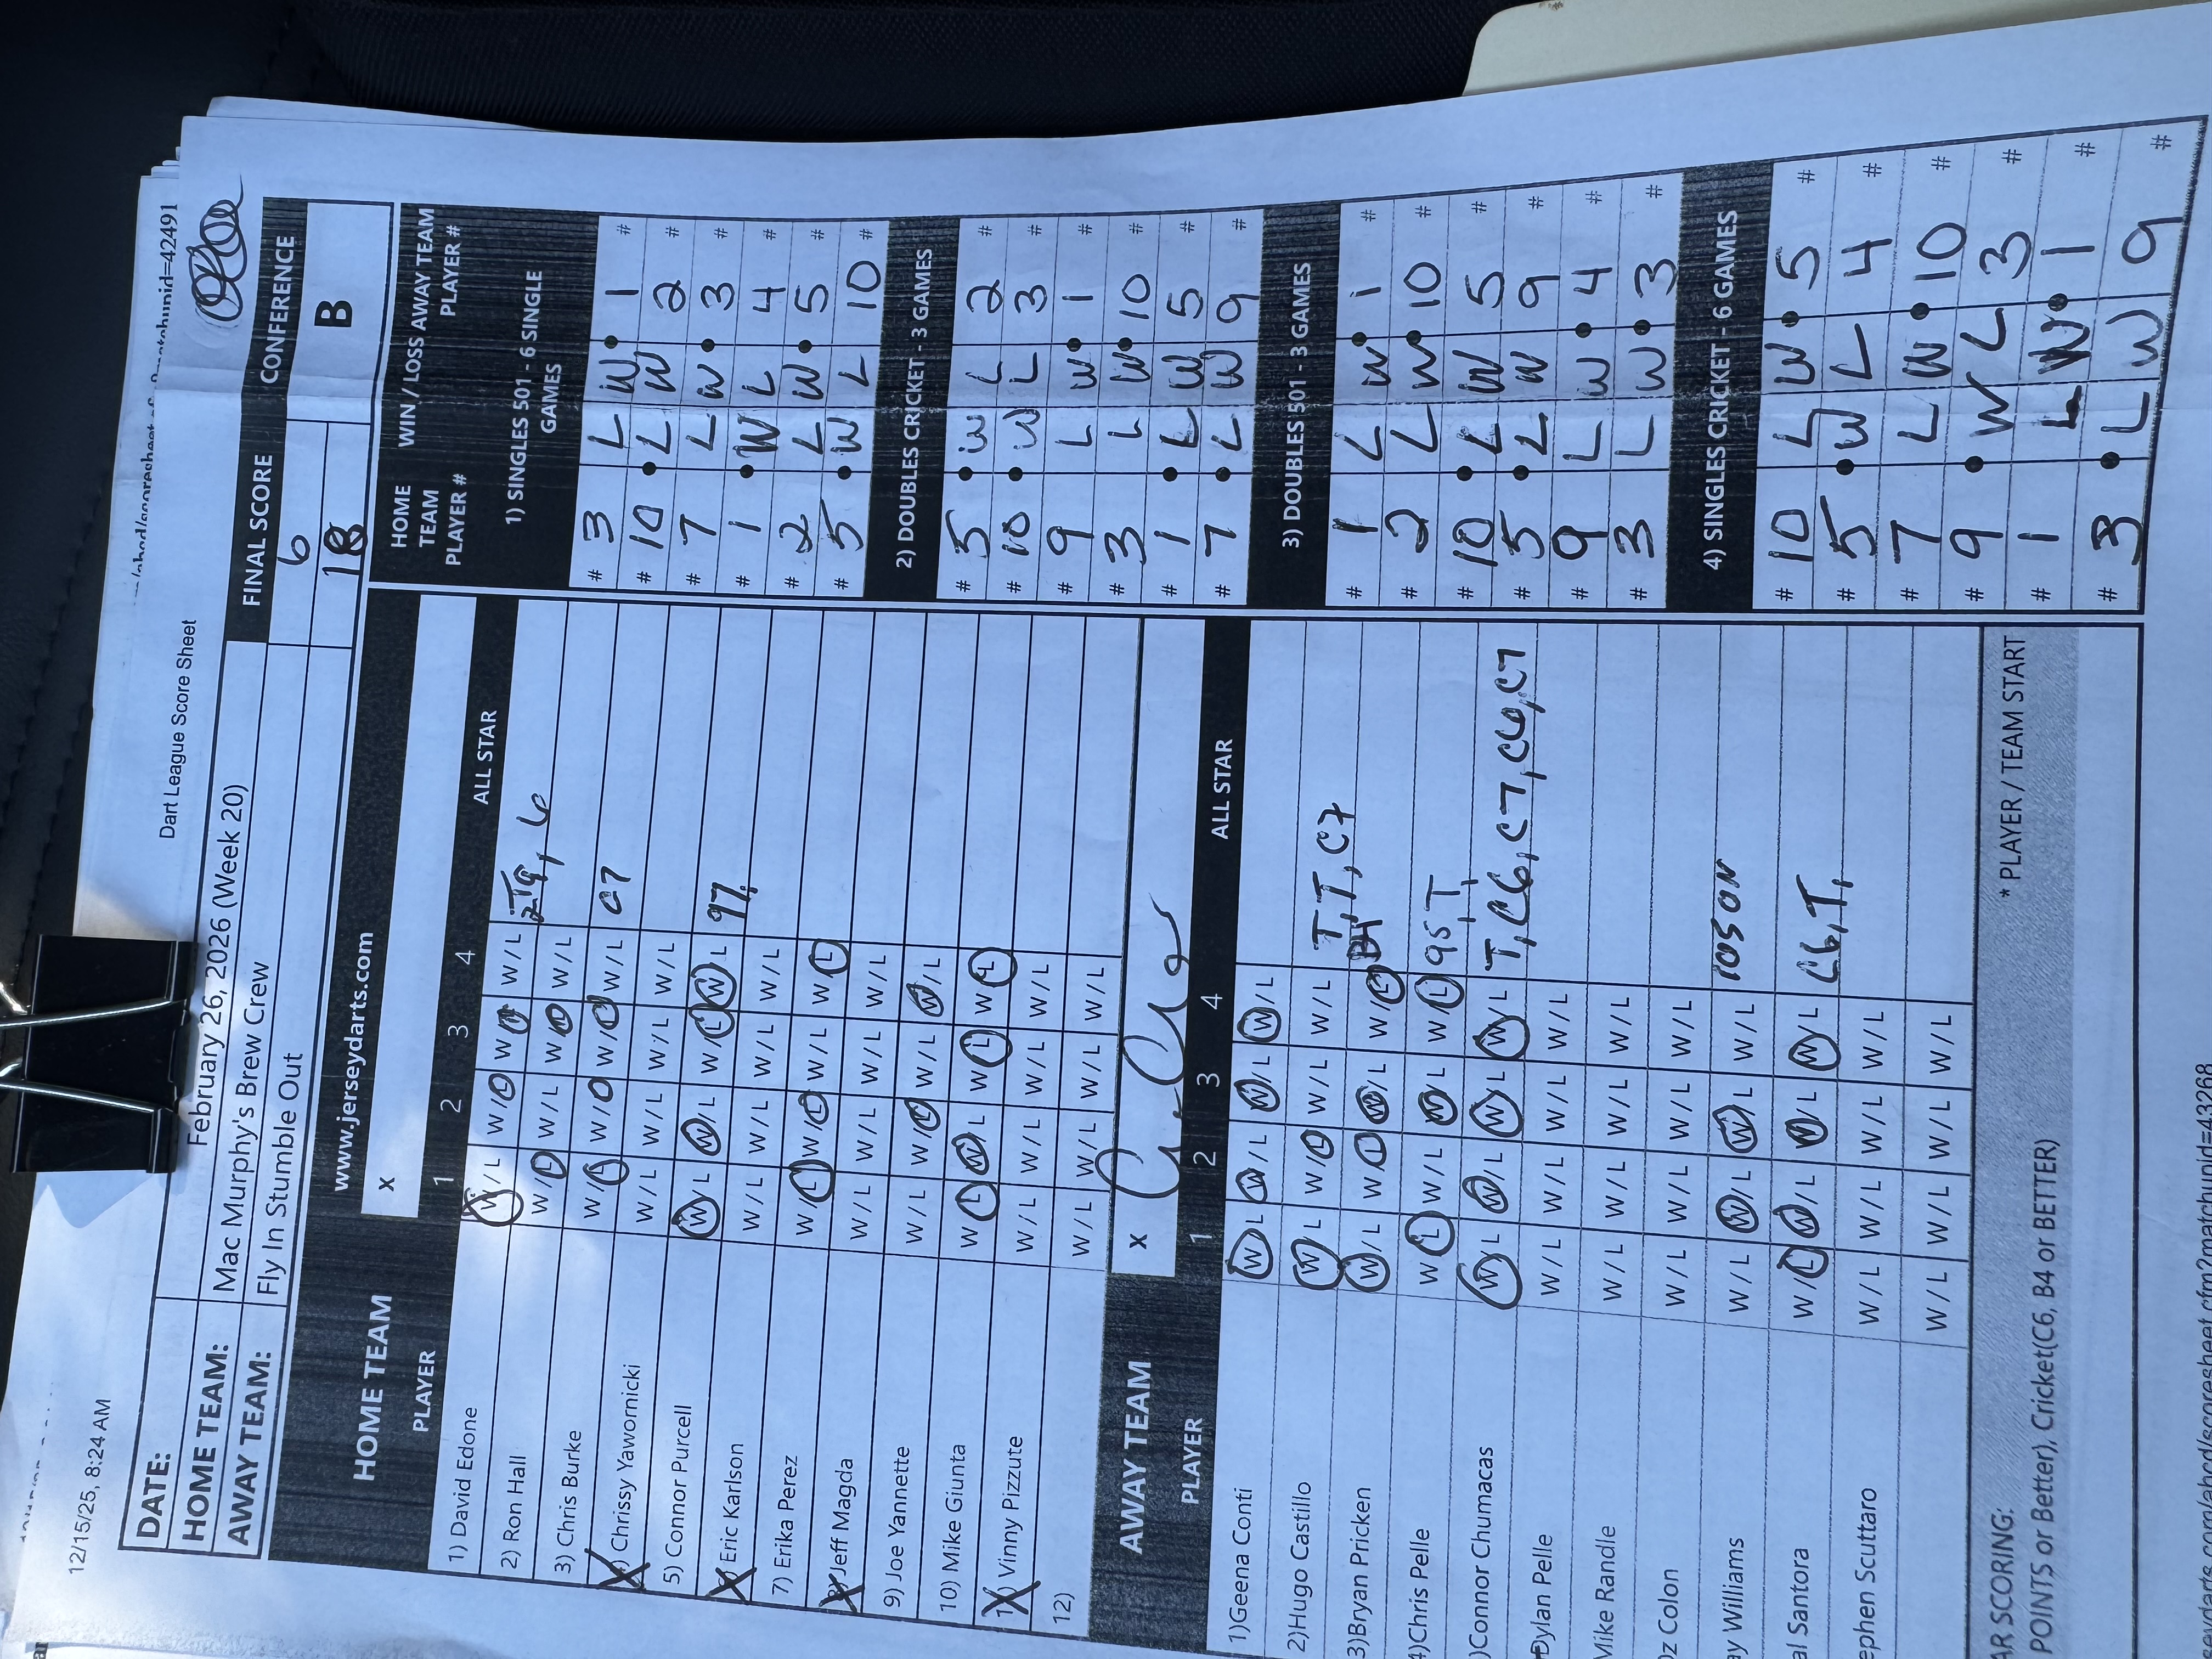 12/15/25, 8:24 AM
Dart League Score Sheet
matchunid=42491
DATE: February 26, 2026 (Week 20)
HOME TEAM: Mac Murphy's Brew Crew
AWAY TEAM: Fly In Stumble Out
FINAL SCORE
6
18
CONFERENCE
B
www.jerseydarts.com
HOME TEAM
X
PLAYER 1 2 3 4 ALL STAR
1) David Edone W / L W / L W / L W / L 2T9, 6
2) Ron Hall W / L W / L W / L W / L
3) Chris Burke W / L W / L W / L W / L C7
4) Chrissy Yawornicki W / L W / L W / L W / L
5) Connor Purcell W / L W / L W / L W / L 97.
6) Eric Karlson W / L W / L W / L W / L
7) Erika Perez W / L W / L W / L W / L
8) Jeff Magda W / L W / L W / L W / L
9) Joe Yannette W / L W / L W / L W / L
10) Mike Giunta W / L W / L W / L W / L
11) Vinny Pizzute W / L W / L W / L W / L
12) W / L W / L W / L W / L
AWAY TEAM
X
PLAYER 1 2 3 4 ALL STAR
1)Geena Conti W / L W / L W / L W / L
2)Hugo Castillo W / L W / L W / L W / L T,T,C7
3)Bryan Pricken W / L W / L W / L W / L
4)Chris Pelle W / L W / L W / L W / L 95,T,
)Connor Chumacas W / L W / L W / L W / L T,C6,C7,C6,C7
Dylan Pelle W / L W / L W / L W / L
Mike Randle W / L W / L W / L W / L
Oz Colon W / L W / L W / L W / L
ay Williams W / L W / L W / L W / L 105 ON
al Santora W / L W / L W / L W / L C6,T,
ephen Scuttaro W / L W / L W / L W / L
W / L W / L W / L W / L
AR SCORING:
* PLAYER / TEAM START
POINTS or Better), Cricket(C6, B4 or BETTER)
HOME TEAM PLAYER # WIN / LOSS AWAY TEAM PLAYER #
1) SINGLES 501 - 6 SINGLE GAMES
# 3 L W 1 #
# 10 L W 2 #
# 7 L W 3 #
# 1 W L 4 #
# 2 L W 5 #
# 5 W L 10 #
2) DOUBLES CRICKET - 3 GAMES
# 5 W L 2 #
# 10 W L 3 #
# 9 L W 1 #
# 3 L W 10 #
# 1 L W 5 #
# 7 L W 9 #
3) DOUBLES 501 - 3 GAMES
# 1 L W 1 #
# 2 L W 10 #
# 10 L W 5 #
# 5 L W 9 #
# 9 L W 4 #
# 3 L W 3 #
4) SINGLES CRICKET - 6 GAMES
# 10 L W 5 #
# 5 W L 4 #
# 7 L W 10 #
# 9 W L 3 #
# 1 L W 1 #
# 3 L W 9 #
seydarts.com/abcd/scoresheet.cfm?matchunid=43268